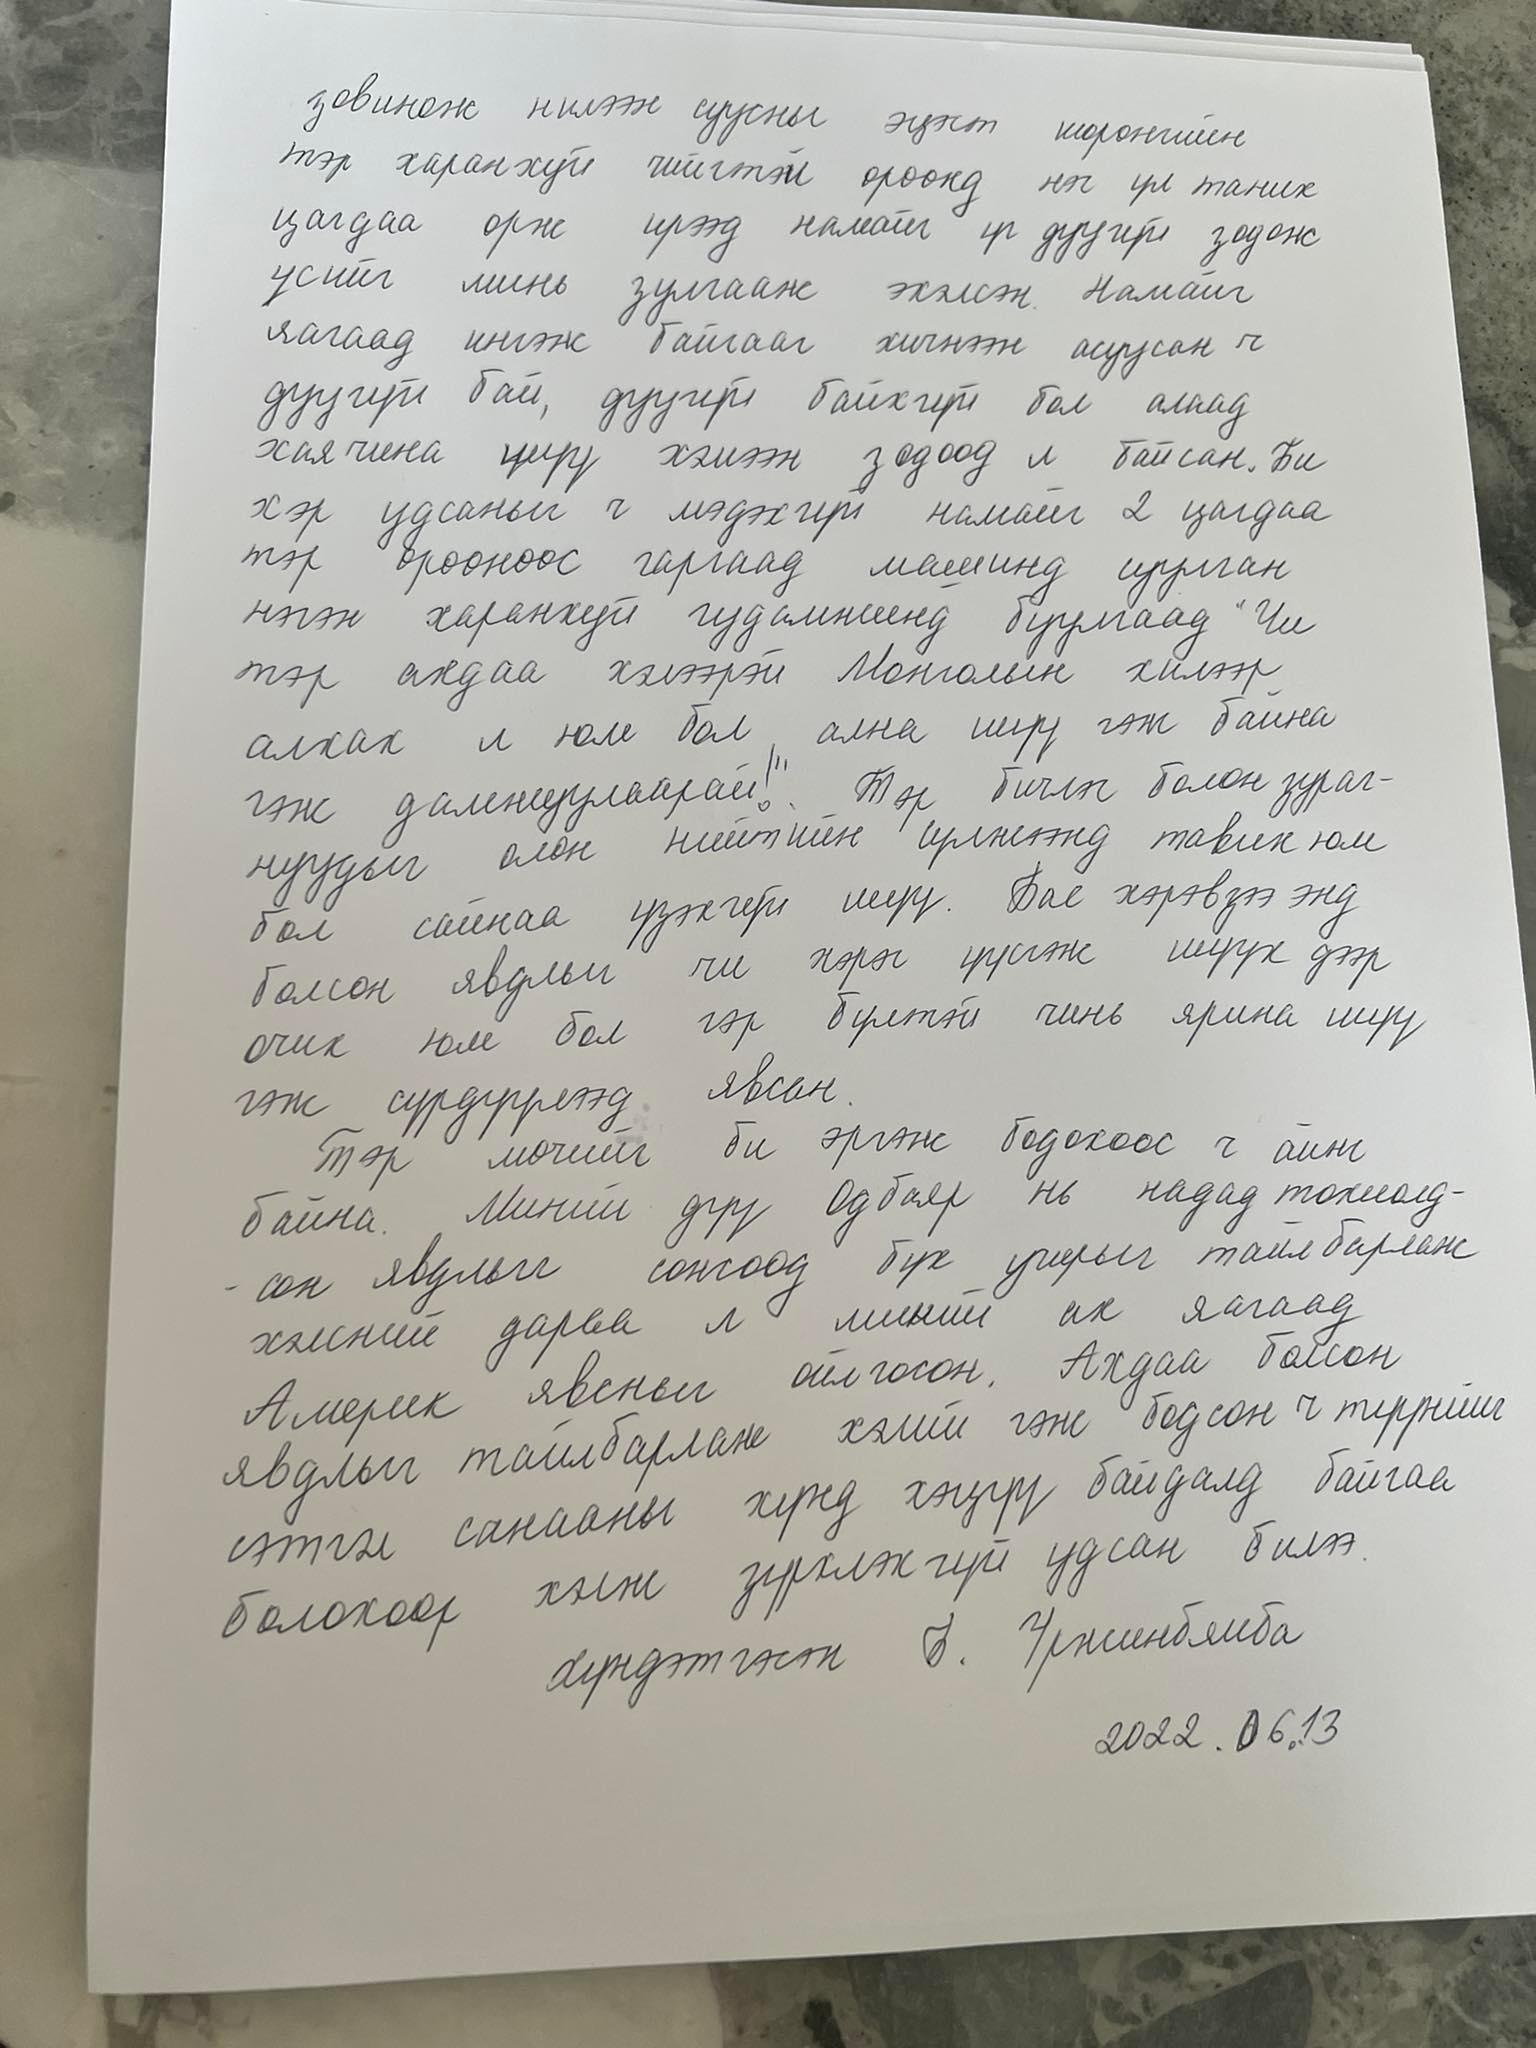 зовинож нилээн суусны эцэст шоронгийн
тэр харанхуй чийгтэй өрөөнд нэг үл таних
цагдаа орж ирээд намайг үг дуугүй зодож
үсийг минь зулгааж эхэлсэн. Намайг
яагаад ингэж байгааг хичнээн асуусан ч
дуугүй бай, дуугүй байхгүй бол алаад
хаячина шүү хэмээн зодоод л байсан. Би
хэр удсаныг ч мэдэхгүй намайг 2 цагдаа
тэр өрөөнөөс гаргаад машинд суулган
нэгэн харанхуй гудамжинд буулгаад "Чи
тэр ахдаа хэлээрэй Монголын хилээр
алхах л юм бол ална шүү гэж байна
гэж дамжуулаарай!". Тэр бичлэг болон зураг-
нуудыг олон нийтийн сүлжээнд тавих юм
бол сайнаа үзэхгүй шүү. Бас хэрэвзээ энд
болсон явдлыг чи хэрэг үүсгэж шүүх дээр
очих юм бол гэр бүлтэй чинь ярина шүү
гэж сүрдүүлээд явсан.
Тэр мөчийг би эргэж бодохоос ч айнг
байна. Миний дүү Одбаяр нь надад тохиолд-
-сон явдлыг сонсоод бүх учрыг тайлбарлаж
хэлсний дараа л миний ах яагаад
Америк явсныг ойлгосон. Ахдаа болсон
явдлыг тайлбарлаж хэлий гэж бодсон ч түүнийг
сэтгэл санааны хүнд хэцүү байдалд байгаа
болохоор хэлж зүрхлэхгүй удсан билээ.
Хүндэтгэсэн Б. Үржинбямба
2022.06.13